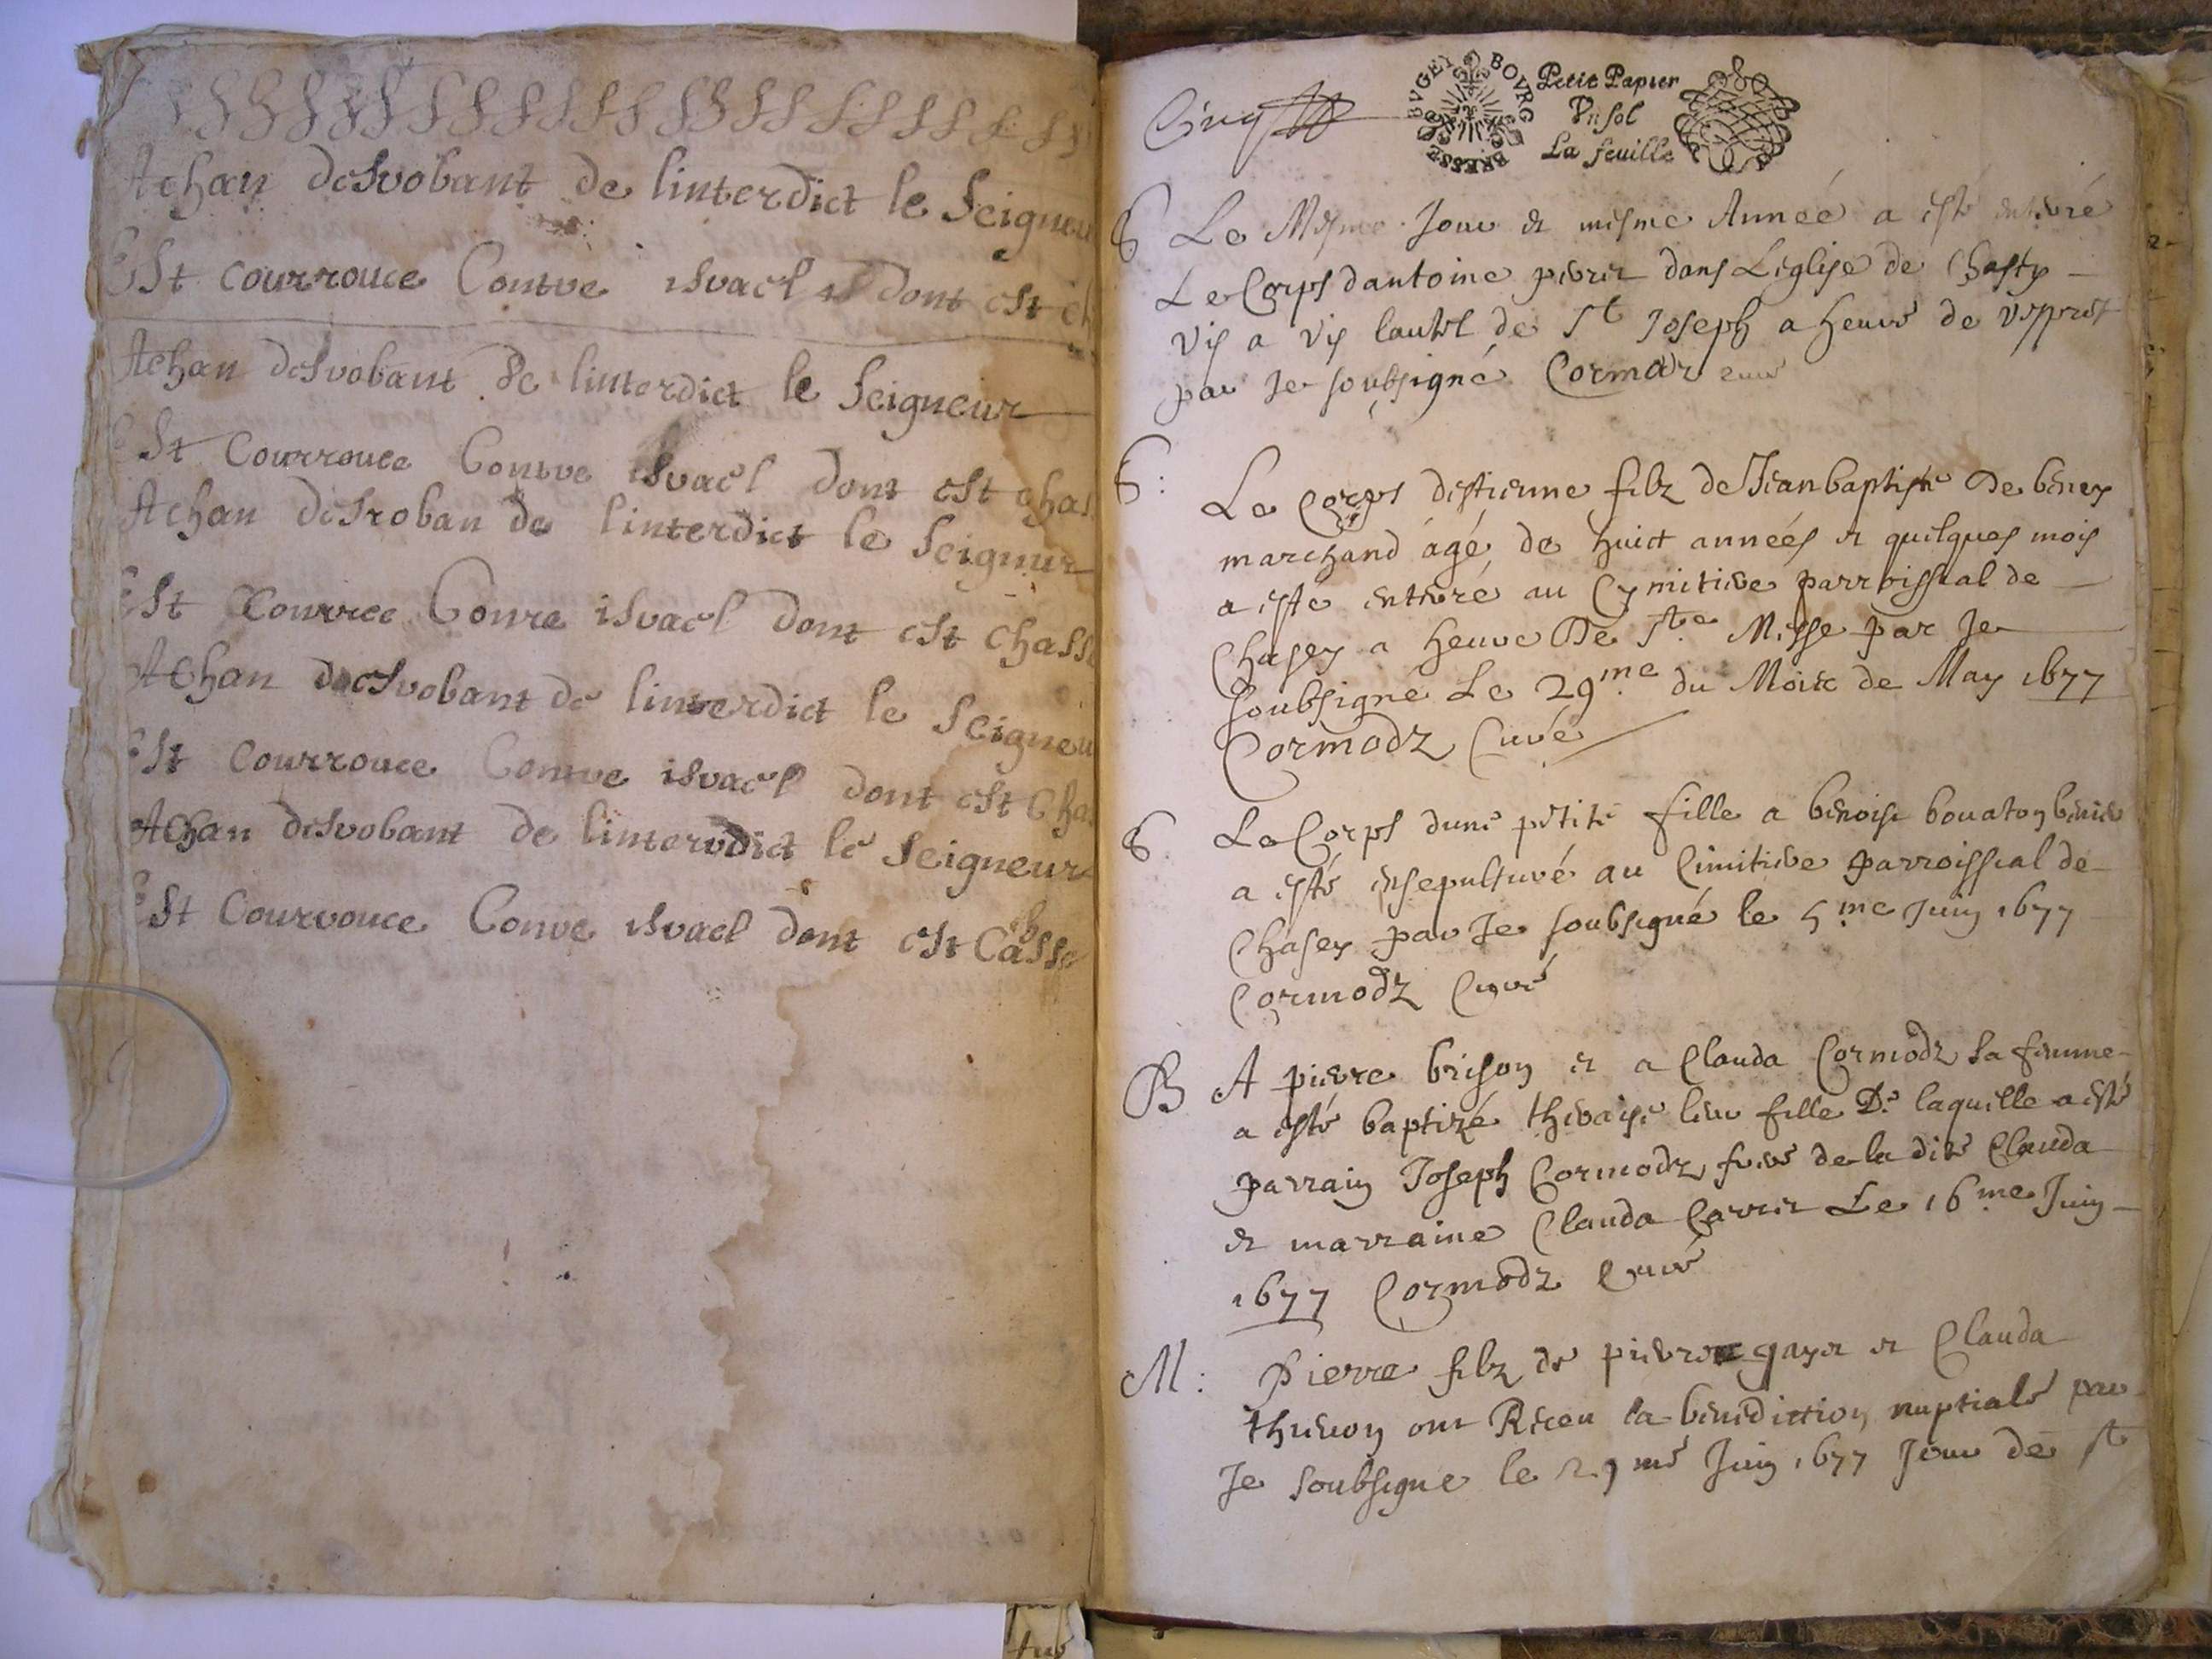 Achan desrobant de linterdict le Seigneu
Est courrouce Contre israel dont est ch
Achan desrobant de linterdict le Seigneur
Est Courrouce Contre israel dont est chas
Achan desroban de linterdict le Seigneur
Est Courrce Conre israel dont est chasse
Achan desrobant de linterdict le Seigneu
Est Courrouce Contre israel dont est Cha
Achan desrobant de linterdict le Seigneur
Est Courrouce Conre israel dont est Casse
BVGEY BOVRG BRESSE
Petit Papier
Vn sol
La feuille
S Le Mesme Jour et mesme Année a esté enterré
Le Corps dantoine dans Leglise de Chasey
vis a vis lautel de St Joseph a heure de vespres
par Je soubsigné Cormodz curé
S: Le Corps destienne filz de Jeanbaptiste De
marchand âgé de huict années et quelques mois
a esté enterré au Cymitiere parroissial de
Chasey a heure De Ste Messe par Je
soubsigné Le 29me du Mois de May 1677
Cormodz Curé
S Le Corps dune petite fille a benoist
a esté ensepulturé au Cimitiere parroissial de
Chasey par Je soubsigné le 5me Juin 1677
Cormodz Curé
B A pierre brison et a Clauda Cormodz sa femme
a esté baptizé theraise leur fille De laquelle a esté
parrain Joseph Cormodz frere de la dite Clauda
et marraine Clauda Carrier Le 16me Juin
1677 Cormodz Curé
M: Pierre filz de pierre gayet et Clauda
thevenon ont Receu la benediction nuptiale par
Je soubsigne le 29me Juin 1677 Jour de St